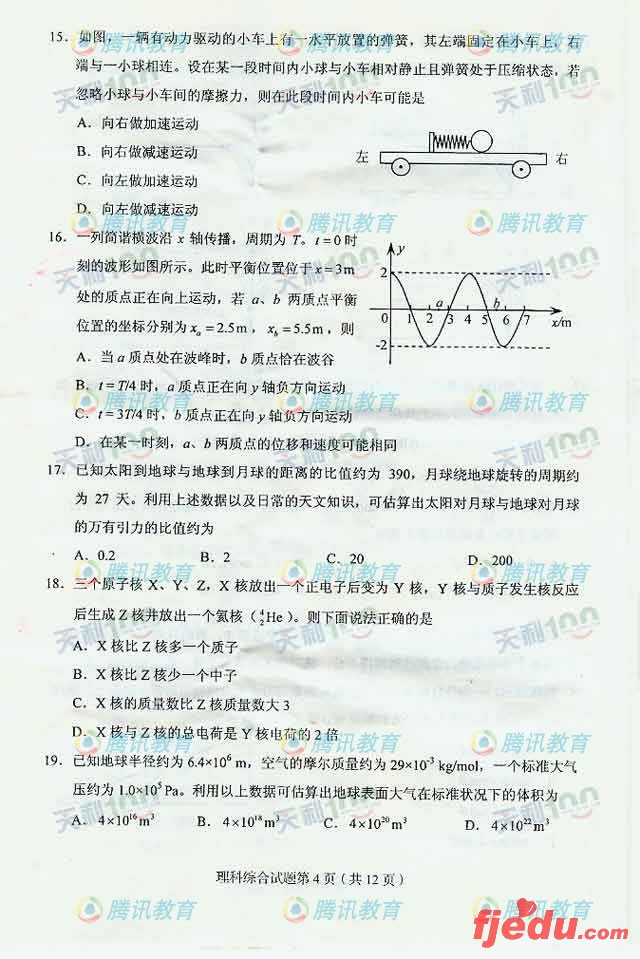 15．如图，一辆有动力驱动的小车上有一水平放置的弹簧，其左端固定在小车上，右
端与一小球相连。设在某一段时间内小球与小车相对静止且弹簧处于压缩状态，若
忽略小球与小车间的摩擦力，则在此段时间内小车可能是
A．向右做加速运动
B．向右做减速运动
C．向左做加速运动
D．向左做减速运动
左
右
16．一列简谐横波沿 x 轴传播，周期为 T。t＝0 时
刻的波形如图所示。此时平衡位置位于 x＝3m
处的质点正在向上运动，若 a、b 两质点平衡
位置的坐标分别为 xₐ＝2.5m，x_b＝5.5m，则
A．当 a 质点处在波峰时，b 质点恰在波谷
B．t＝T/4 时，a 质点正在向 y 轴负方向运动
C．t＝3T/4 时，b 质点正在向 y 轴负方向运动
D．在某一时刻，a、b 两质点的位移和速度可能相同
y
2
a
b
0 1 2 3 4 5 6 7 x/m
-2
17．已知太阳到地球与地球到月球的距离的比值约为 390，月球绕地球旋转的周期约
为 27 天。利用上述数据以及日常的天文知识，可估算出太阳对月球与地球对月球
的万有引力的比值约为
A．0.2 B．2 C．20 D．200
18．三个原子核 X、Y、Z，X 核放出一个正电子后变为 Y 核，Y 核与质子发生核反应
后生成 Z 核并放出一个氦核（⁴₂He）。则下面说法正确的是
A．X 核比 Z 核多一个质子
B．X 核比 Z 核少一个中子
C．X 核的质量数比 Z 核质量数大 3
D．X 核与 Z 核的总电荷是 Y 核电荷的 2 倍
19．已知地球半径约为 6.4×10⁶ m，空气的摩尔质量约为 29×10⁻³ kg/mol，一个标准大气
压约为 1.0×10⁵ Pa。利用以上数据可估算出地球表面大气在标准状况下的体积为
A．4×10¹⁶ m³ B．4×10¹⁸ m³ C．4×10²⁰ m³ D．4×10²² m³
理科综合试题第 4 页（共 12 页）
腾讯教育
天利100
fjedu.com